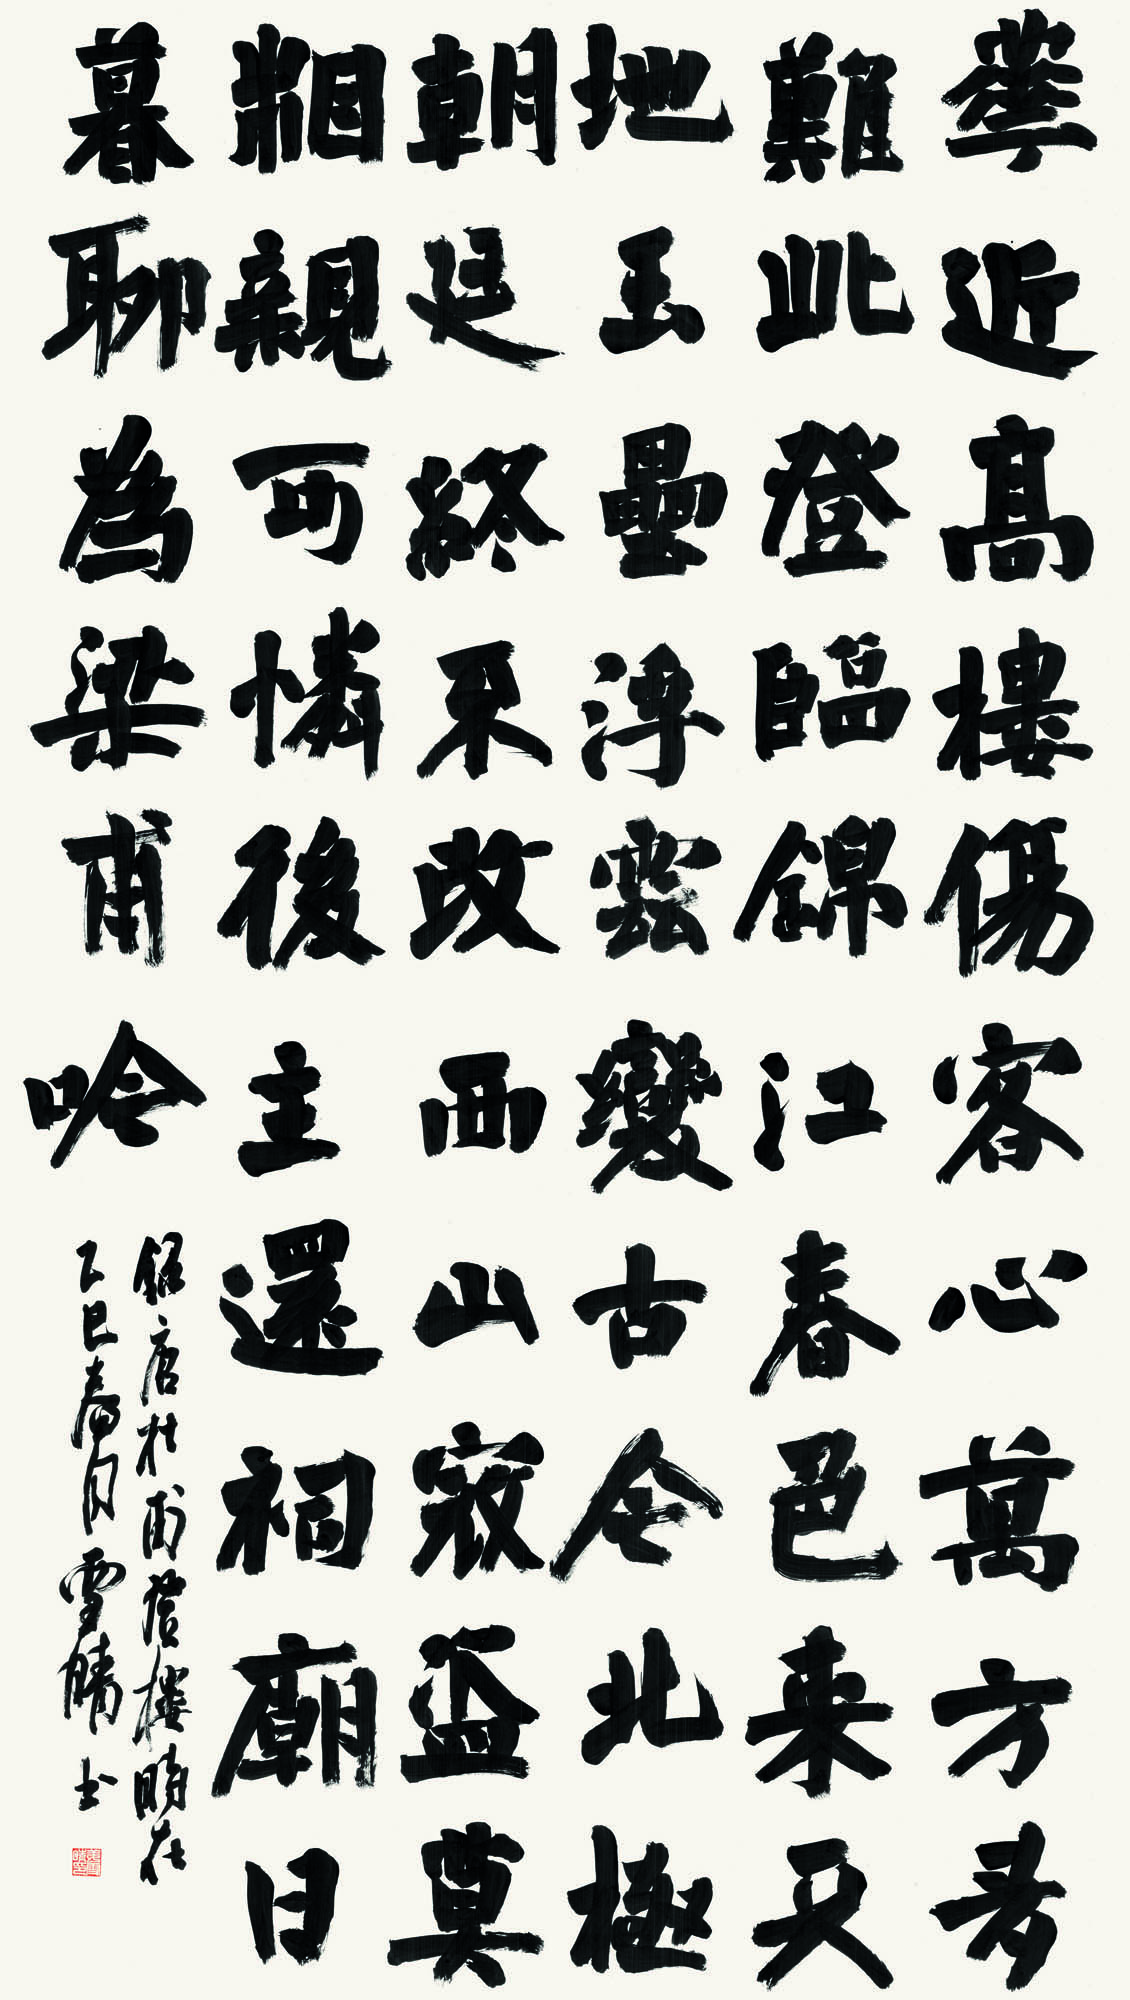 華近高樓傷客心萬方多
難此登臨錦江春色来天
地玉壘浮雲變古今北極
朝廷終不改西山寇盜莫
相親可憐後主還祠廟日
暮聊為梁甫吟
録唐杜甫登樓時在
乙巳春月雪晴书